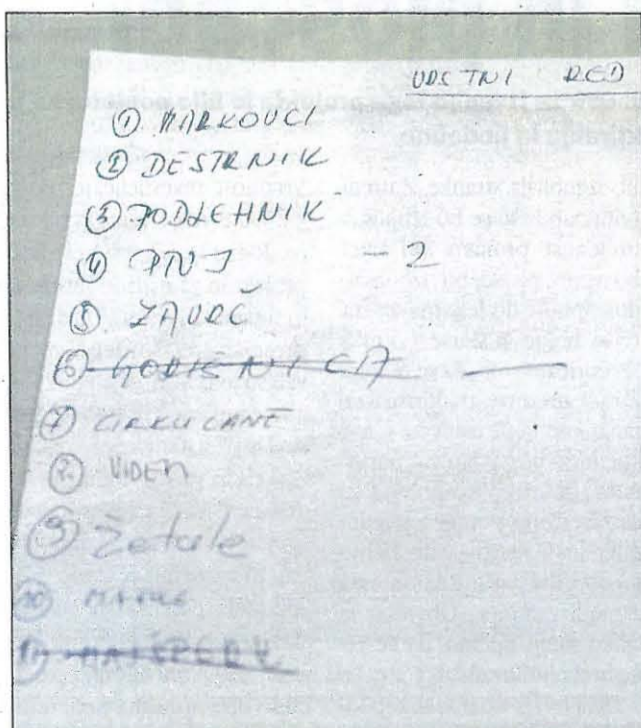 VRSTNI RED
① MARKOVCI
② DESTRNIK
③ PODLEHNIK
④ PTUJ - 2
⑤ ZAVRČ
⑥ GORIŠNICA
⑦ CIRKULANE
⑧ VIDEM
⑨ Žetale
⑩
⑪ MAJŠPERK